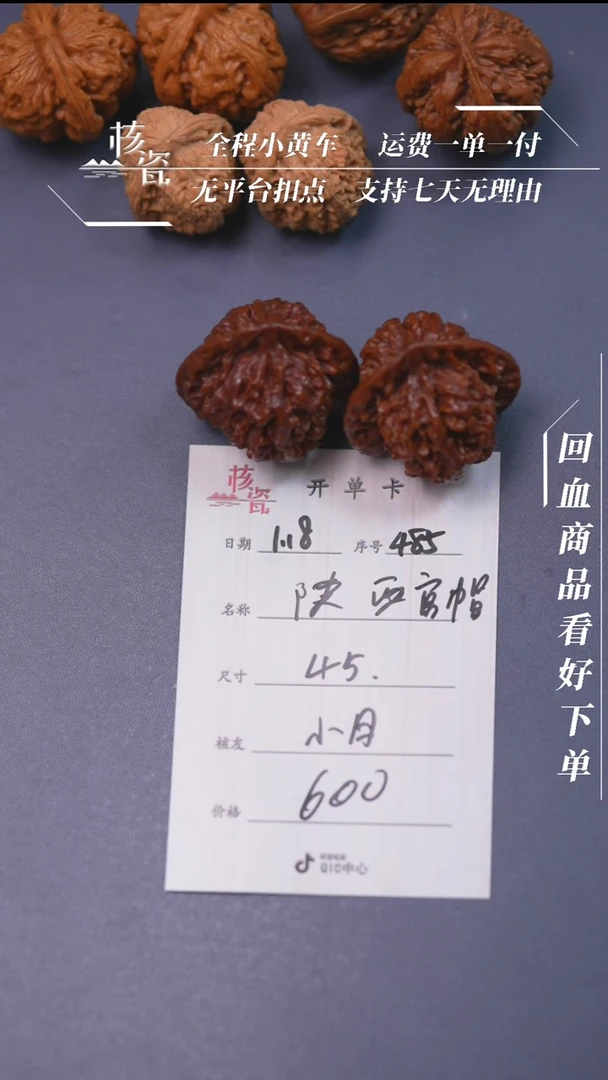 核瓷
全程小黄车 运费一单一付
无平台扣点 支持七天无理由
回血商品看好下单
核瓷
开单卡
日期 1.18 序号 485
名称 陕西官帽
尺寸 45.
核友 小月
价格 600
QIC中心